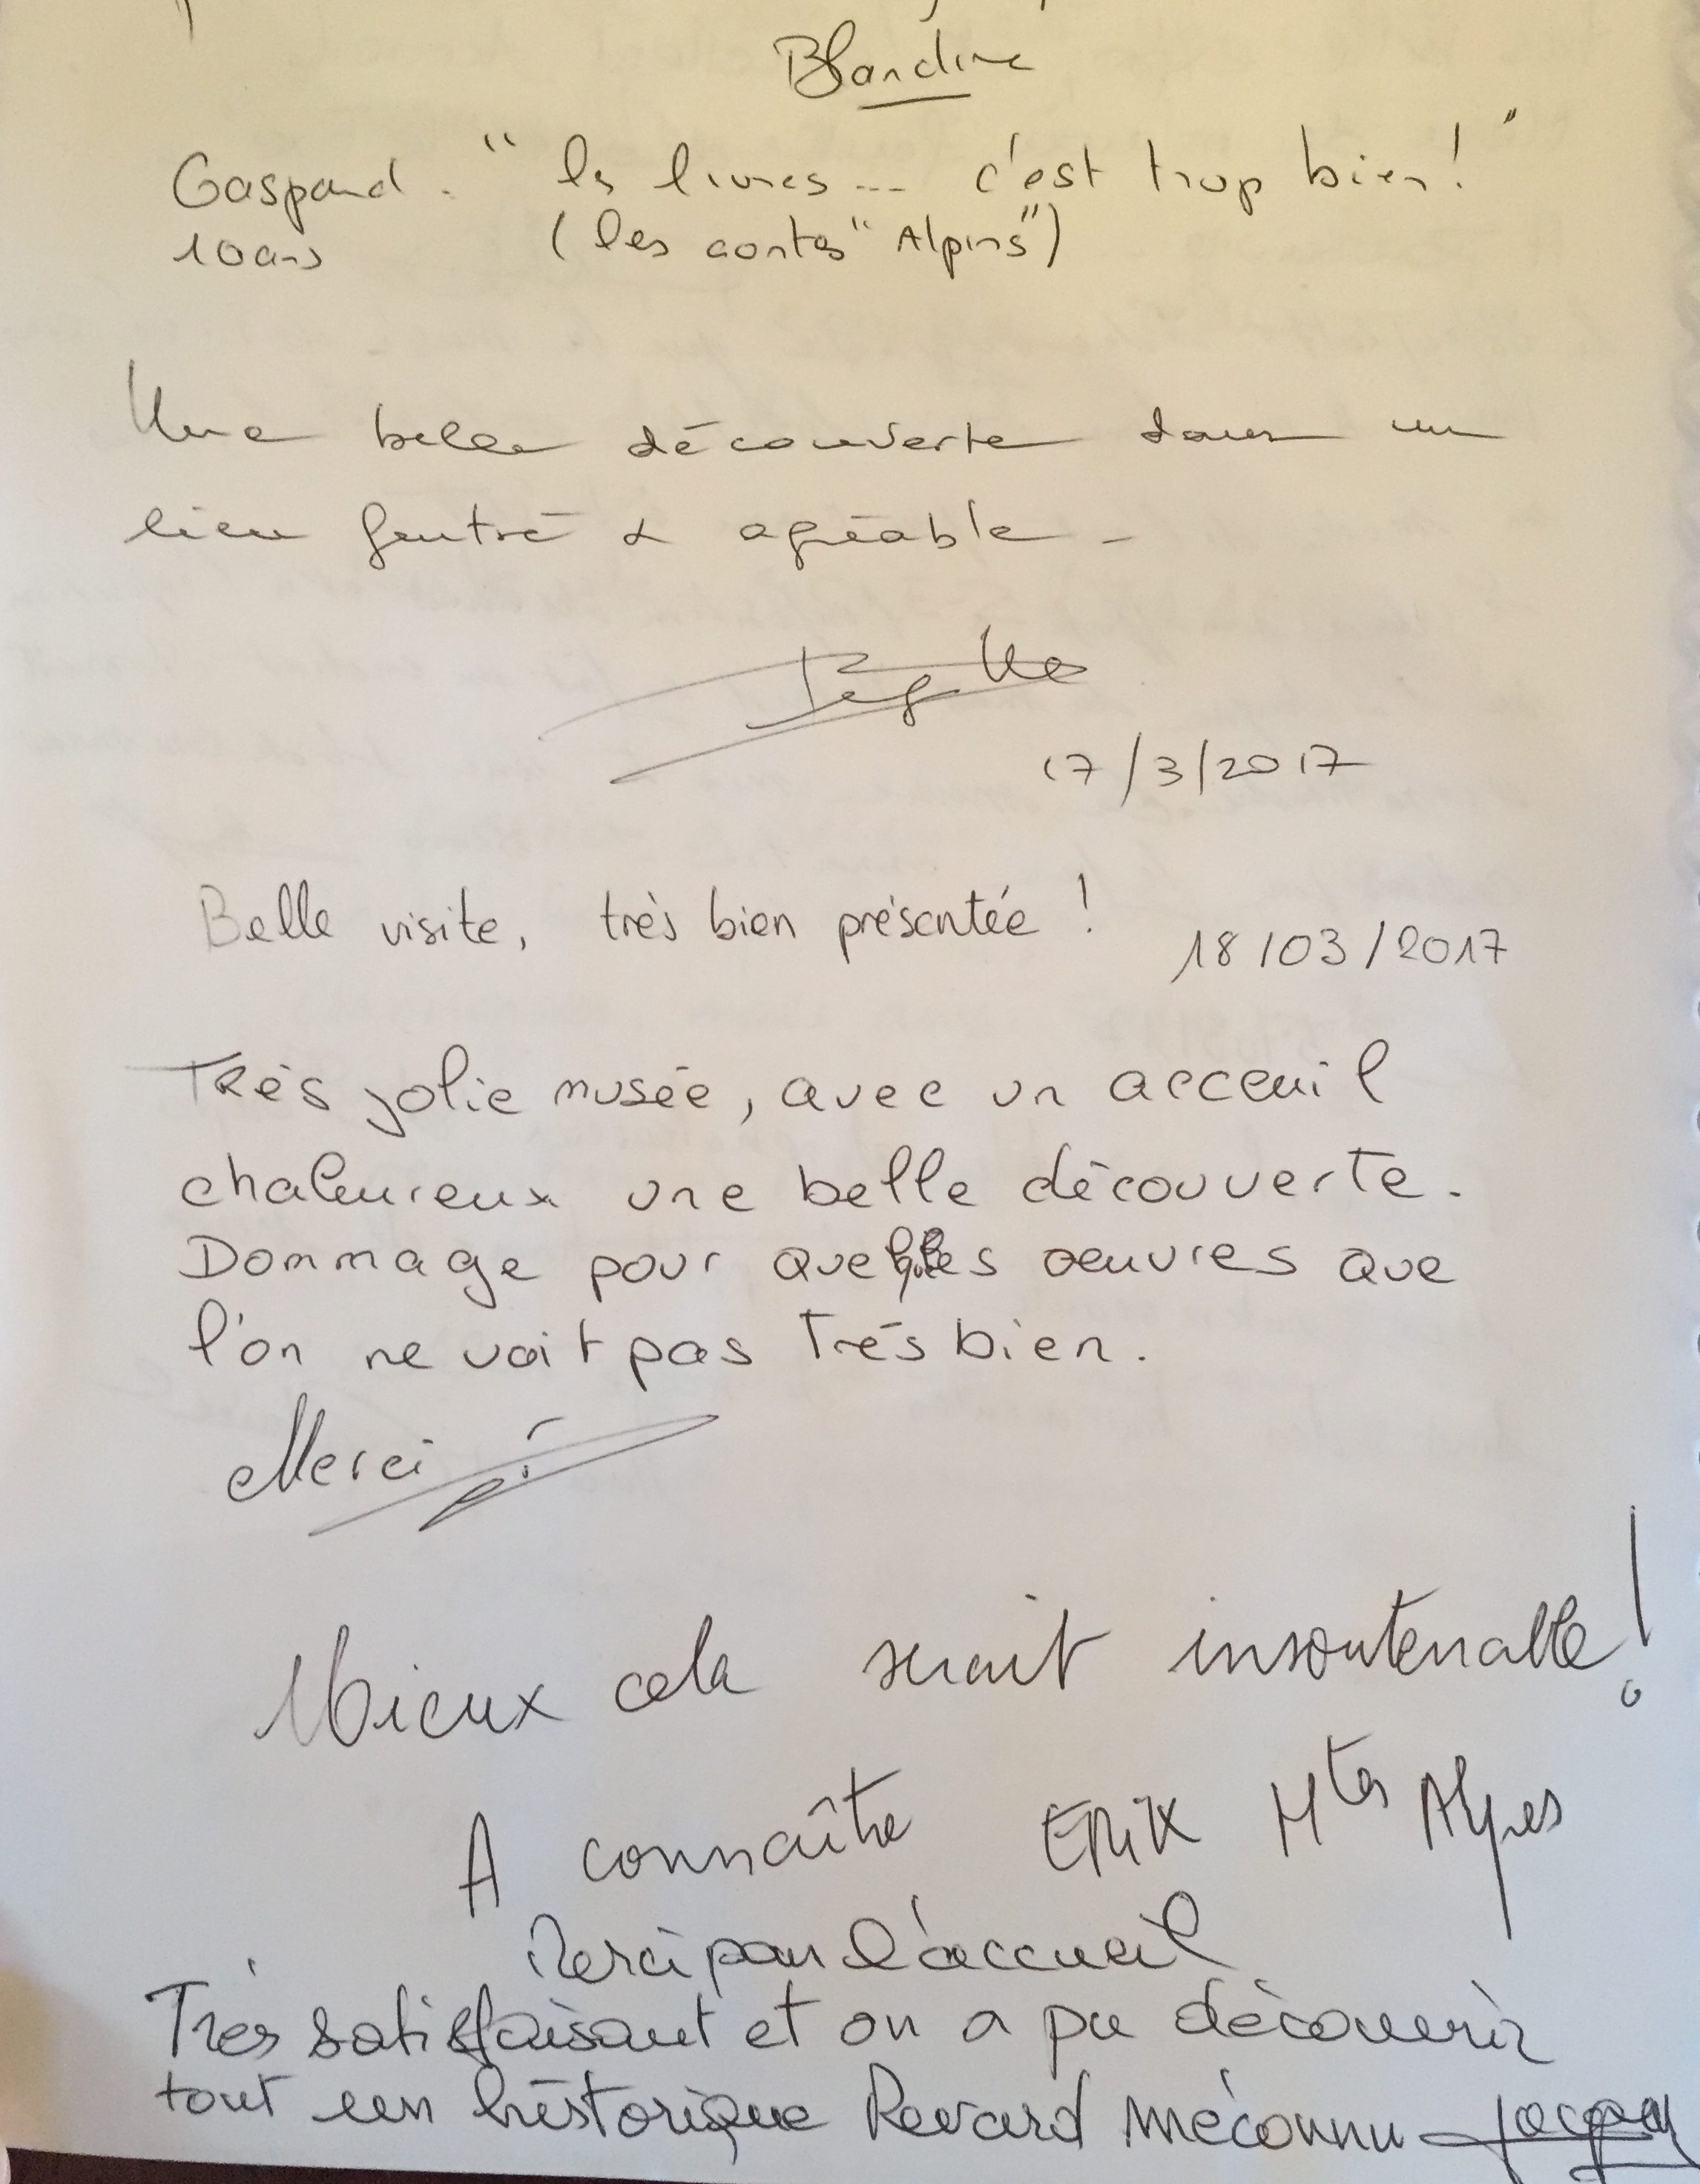 Blandine
Gaspard. "les livres... c'est trop bien!"
10 ans (les contes "Alpins")
Une belle découverte dans un
lieu feutré & agréable -
17/3/2017
Belle visite, très bien présentée !
18/03/2017
Très jolie musée, avec un acceuil
chaleureux une belle découverte.
Dommage pour quelques oeuvres que
l'on ne voit pas très bien.
Merci
Mieux cela serait insoutenable !
A connaître ERIK Htes Alpes
Merci pour l'accueil
Très satisfaisant et on a pu découvrir
tout un historique Revard méconnu